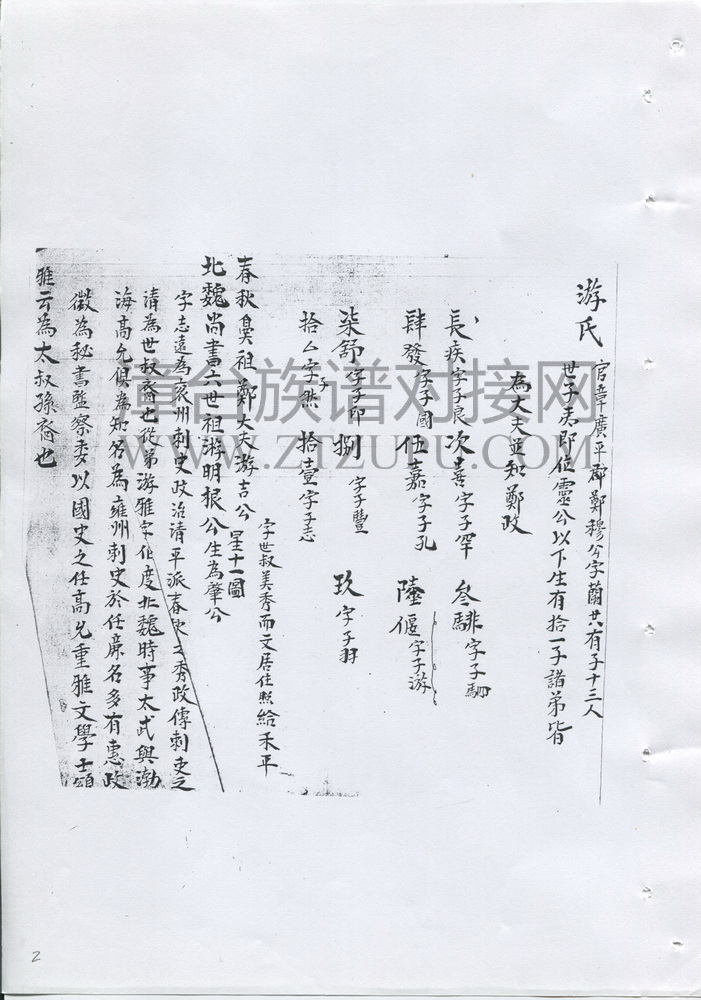 游氏 官章廣平郡鄭穆公字蘭共有子十三人
世子夷即位靈公以下生有拾一子諸弟皆
為大夫並知鄭政
長疾字子良 次喜字子罕 叁騑字子駟
肆發字子國 伍嘉字子孔 陸偃字子游
柒舒字子印 捌 字子豐 玖 字子羽
拾 字子然 拾壹 字子志
春秋 祖鄭大夫游吉公 字世叔美秀而文居住照給禾平里十一圖
北魏尚書六世祖游明根公生為肇公
字志遠為 州刺史政治清平派春秋之秀政傳刺吏之
清為世叔裔也從弟游雅字伯度北魏時事太武與渤
海高允俱為知名為雍州刺史於任 名多有惠政
徵為秘書監察委以國史之任高允重雅文學士頌
雅云為太叔孫裔也
台族谱对接网
WWW.ZTZUPU.COM
2